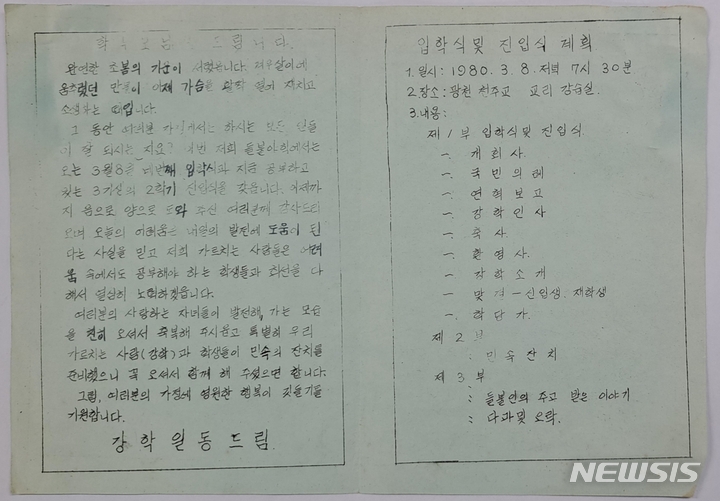 학부모님께 드립니다.
완연한 초봄의 기운이 시작됩니다. 겨우살이에
움츠렸던 만물이 이제 가슴을 활짝 열어 재치고
소생하는 때입니다.
그 동안 여러분 가정에서는 하시는 모든 일들
이 잘 되시는지요? 이번 저희 들불야학에서는
오는 3월 8일 네번째 입학식과 지금 공부하고
있는 3기생의 2학기 진입식을 갖습니다. 이제까
지 음으로 양으로 도와 주신 여러분께 감사드리
오며 오늘의 어려움은 내일의 발전에 도움이 된
다는 사실을 믿고 저희 가르치는 사람들은 어려
움 속에서도 공부해야 하는 학생들과 최선을 다
해서 열심히 노력하겠읍니다.
여러분의 사랑하는 자녀들이 발전해 가는 모습
을 친히 오셔서 축복해 주시옵고 특별히 우리
가르치는 사람(강학)과 학생들이 민속의 잔치를
준비했으니 꼭 오셔서 함께 해 주셨으면 합니다.
그럼, 여러분의 가정에 영원한 행복이 깃들기를
기원합니다.
강학일동드림.
입학식및 진입식 계획
1. 일시: 1980. 3. 8. 저녁 7시 30분
2. 장소: 광천 천주교 교리 강습실.
3. 내용:
제1부 입학식및 진입식.
一. 개회사.
一. 국민의례
一. 연혁보고
一. 강학인사
一. 축사.
一. 환영사.
一. 강학소개
一. 맞절 - 신입생. 재학생
一. 학당가.
제2부
: 민속잔치
제3부
: 들불인의 주고 받은 이야기
: 다과및 오락.
NEWSIS